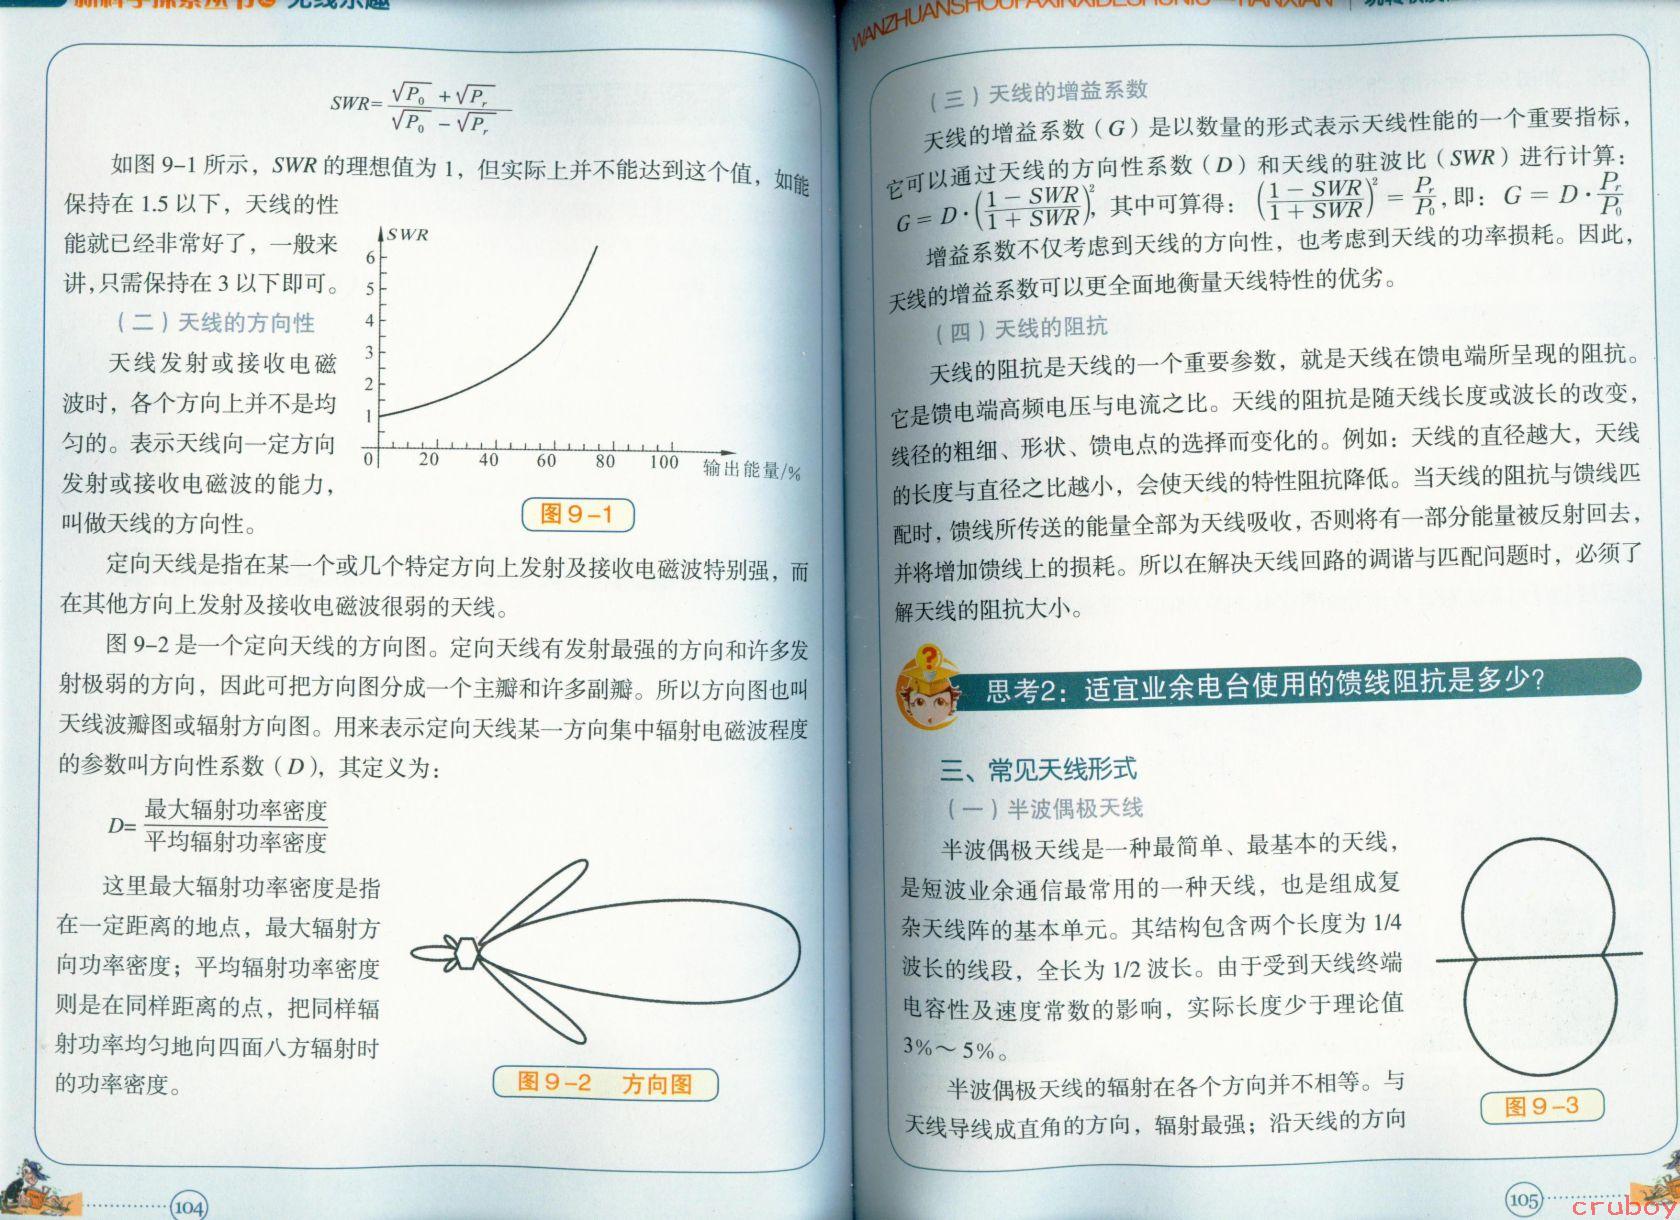 新科学探索丛书 无线乐趣
SWR=(√P₀ + √Pᵣ)/(√P₀ − √Pᵣ)
如图 9-1 所示，SWR 的理想值为 1，但实际上并不能达到这个值，如能
保持在 1.5 以下，天线的性
能就已经非常好了，一般来
讲，只需保持在 3 以下即可。
（二）天线的方向性
天线发射或接收电磁
波时，各个方向上并不是均
匀的。表示天线向一定方向
发射或接收电磁波的能力，
叫做天线的方向性。
SWR
6
5
4
3
2
1
0 20 40 60 80 100 输出能量/%
图9-1
定向天线是指在某一个或几个特定方向上发射及接收电磁波特别强，而
在其他方向上发射及接收电磁波很弱的天线。
图 9-2 是一个定向天线的方向图。定向天线有发射最强的方向和许多发
射极弱的方向，因此可把方向图分成一个主瓣和许多副瓣。所以方向图也叫
天线波瓣图或辐射方向图。用来表示定向天线某一方向集中辐射电磁波程度
的参数叫方向性系数（D），其定义为：
D=最大辐射功率密度/平均辐射功率密度
这里最大辐射功率密度是指
在一定距离的地点，最大辐射方
向功率密度；平均辐射功率密度
则是在同样距离的点，把同样辐
射功率均匀地向四面八方辐射时
的功率密度。
图9-2 方向图
104
WANZHUANSHOUFAXINXIDESHUNIU—TIANXIAN
（三）天线的增益系数
天线的增益系数（G）是以数量的形式表示天线性能的一个重要指标，
它可以通过天线的方向性系数（D）和天线的驻波比（SWR）进行计算：
G = D·((1 − SWR)/(1 + SWR))²，其中可算得：((1 − SWR)/(1 + SWR))² = Pᵣ/P₀，即：G = D·Pᵣ/P₀
增益系数不仅考虑到天线的方向性，也考虑到天线的功率损耗。因此，
天线的增益系数可以更全面地衡量天线特性的优劣。
（四）天线的阻抗
天线的阻抗是天线的一个重要参数，就是天线在馈电端所呈现的阻抗。
它是馈电端高频电压与电流之比。天线的阻抗是随天线长度或波长的改变，
线径的粗细、形状、馈电点的选择而变化的。例如：天线的直径越大，天线
的长度与直径之比越小，会使天线的特性阻抗降低。当天线的阻抗与馈线匹
配时，馈线所传送的能量全部为天线吸收，否则将有一部分能量被反射回去，
并将增加馈线上的损耗。所以在解决天线回路的调谐与匹配问题时，必须了
解天线的阻抗大小。
?
思考2：适宜业余电台使用的馈线阻抗是多少？
三、常见天线形式
（一）半波偶极天线
半波偶极天线是一种最简单、最基本的天线，
是短波业余通信最常用的一种天线，也是组成复
杂天线阵的基本单元。其结构包含两个长度为 1/4
波长的线段，全长为 1/2 波长。由于受到天线终端
电容性及速度常数的影响，实际长度少于理论值
3%～5%。
半波偶极天线的辐射在各个方向并不相等。与
天线导线成直角的方向，辐射最强；沿天线的方向
图9-3
105
cruboy